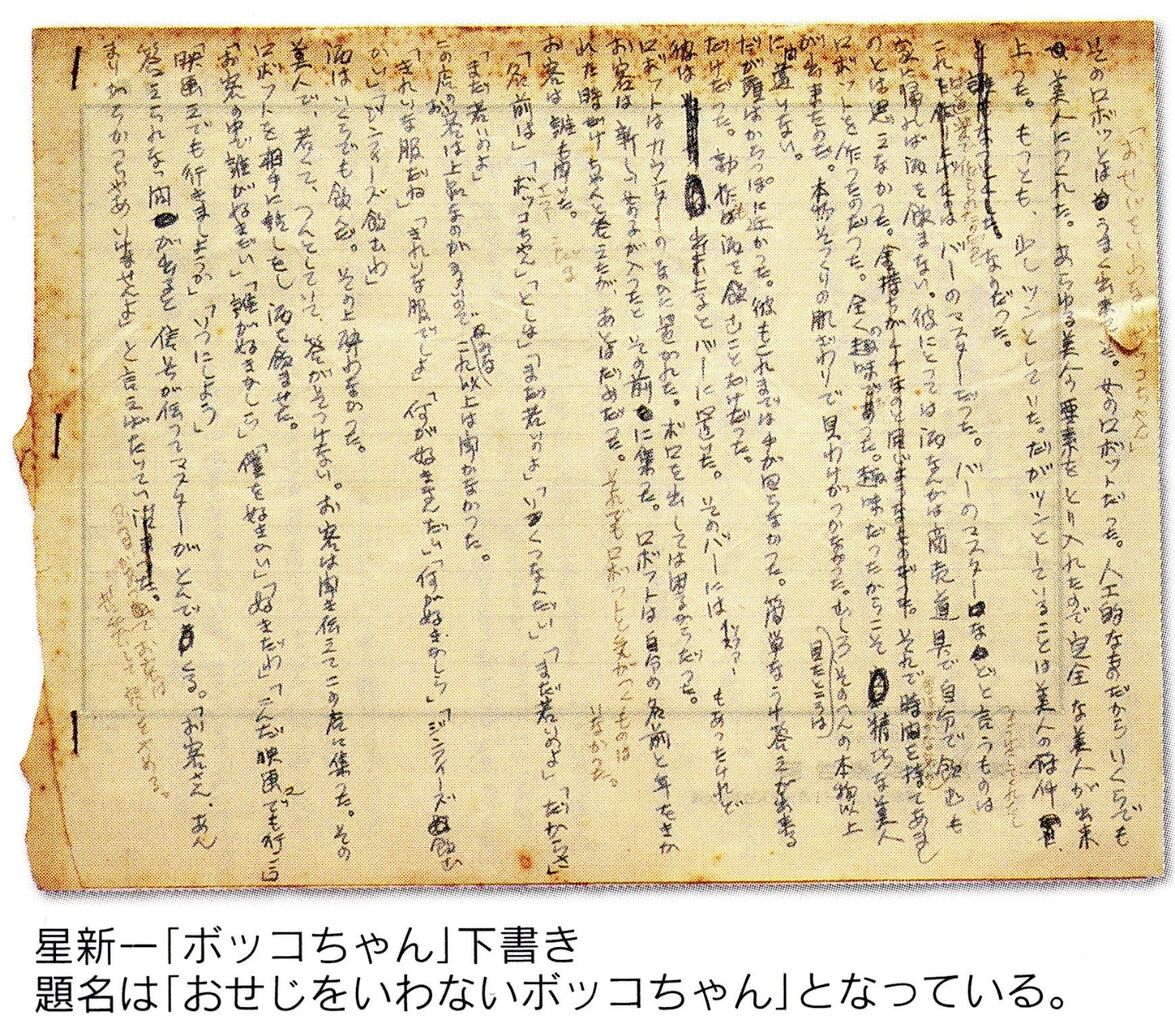 「おせじをいわないボッコちゃん」
そのロボットはうまく出来ていた。女のロボットだった。人工的なものだからいくらでも
美人につくれた。あらゆる美人の要素をとり入れたので完全な美人が出来
上った。もっとも少しツンとしていた。だがツンとしていることは美人の条件
なのだった。
これを作ったのはバーのマスターだった。バーのマスターなどと言うものは
家に帰れば酒を飲まない。彼にとっては酒なんかは商売道具で自分で飲む
もの
のとは思えなかった。それで時間を持てあまし
ロボットを作ったのだった。全く趣味であった。趣味だったからこそ精巧な美人
が出来たのだ。本物そっくりの肌ざわりで見わけがつかなかった。むしろ見たところはそのへんの本物以上
に違いない。
だが頭はからっぽに近かった。彼もこれまでは手が回らなかった。簡単なうけ答えが出来る
だけだった。動作は酒を飲むことだけだった。
彼は出来上るとバーに置いた。そのバーにはもあったけれど
ロボットはカウンターのなかに置かれた。ボロを出しては困るからだった。
お客は新しい女の子が入ったとその前に集った。ロボットは自分の名前と年をきか
れた時だけちゃんと答えたが、あとはだめだった。それでもロボットと気がつくものは
いなかった。
「名前は」「ボッコちゃん」「としは」「まだ若いのよ」「いくつなんだい」「まだ若いのよ」「だからさ」
「まだ若いのよ」
この店のお客は上品なのが多いのでこれ以上は聞かなかった。
「きれいな服だね」「きれいな服でしょ」「何が好きなんだい」「何が好きかしら」「ジンフィーズ飲む
かい」「ジンフィーズ飲むわ」
酒はいくらでも飲んだ。その上酔わなかった。
美人で、若くて、つんとしていて、答えがそっけない。お客は聞き伝えてこの店に集った。その
ロボットを相手に話しをし、酒を飲ませた。
「お客の中で誰が好きだい」「誰が好きかしら」「僕を好きかい」「好きだわ」「こんど映画でも行こう」
「映画にでも行きましょうか」「いつにしよう」
答えられない問が出ると信号が伝ってマスターがとんでくる。「お客さん、あん
まりからかっちゃあいけませんよ」と言えばたいてい
星新一「ボッコちゃん」下書き
題名は「おせじをいわないボッコちゃん」となっている。